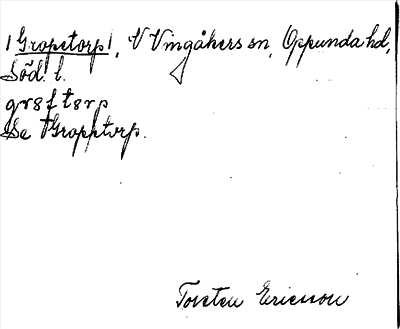 /Gropetorp/, V Vingåkers sn, Oppunda hd,
Söd. l.
Se Gropptorp.
Torsten Ericsson